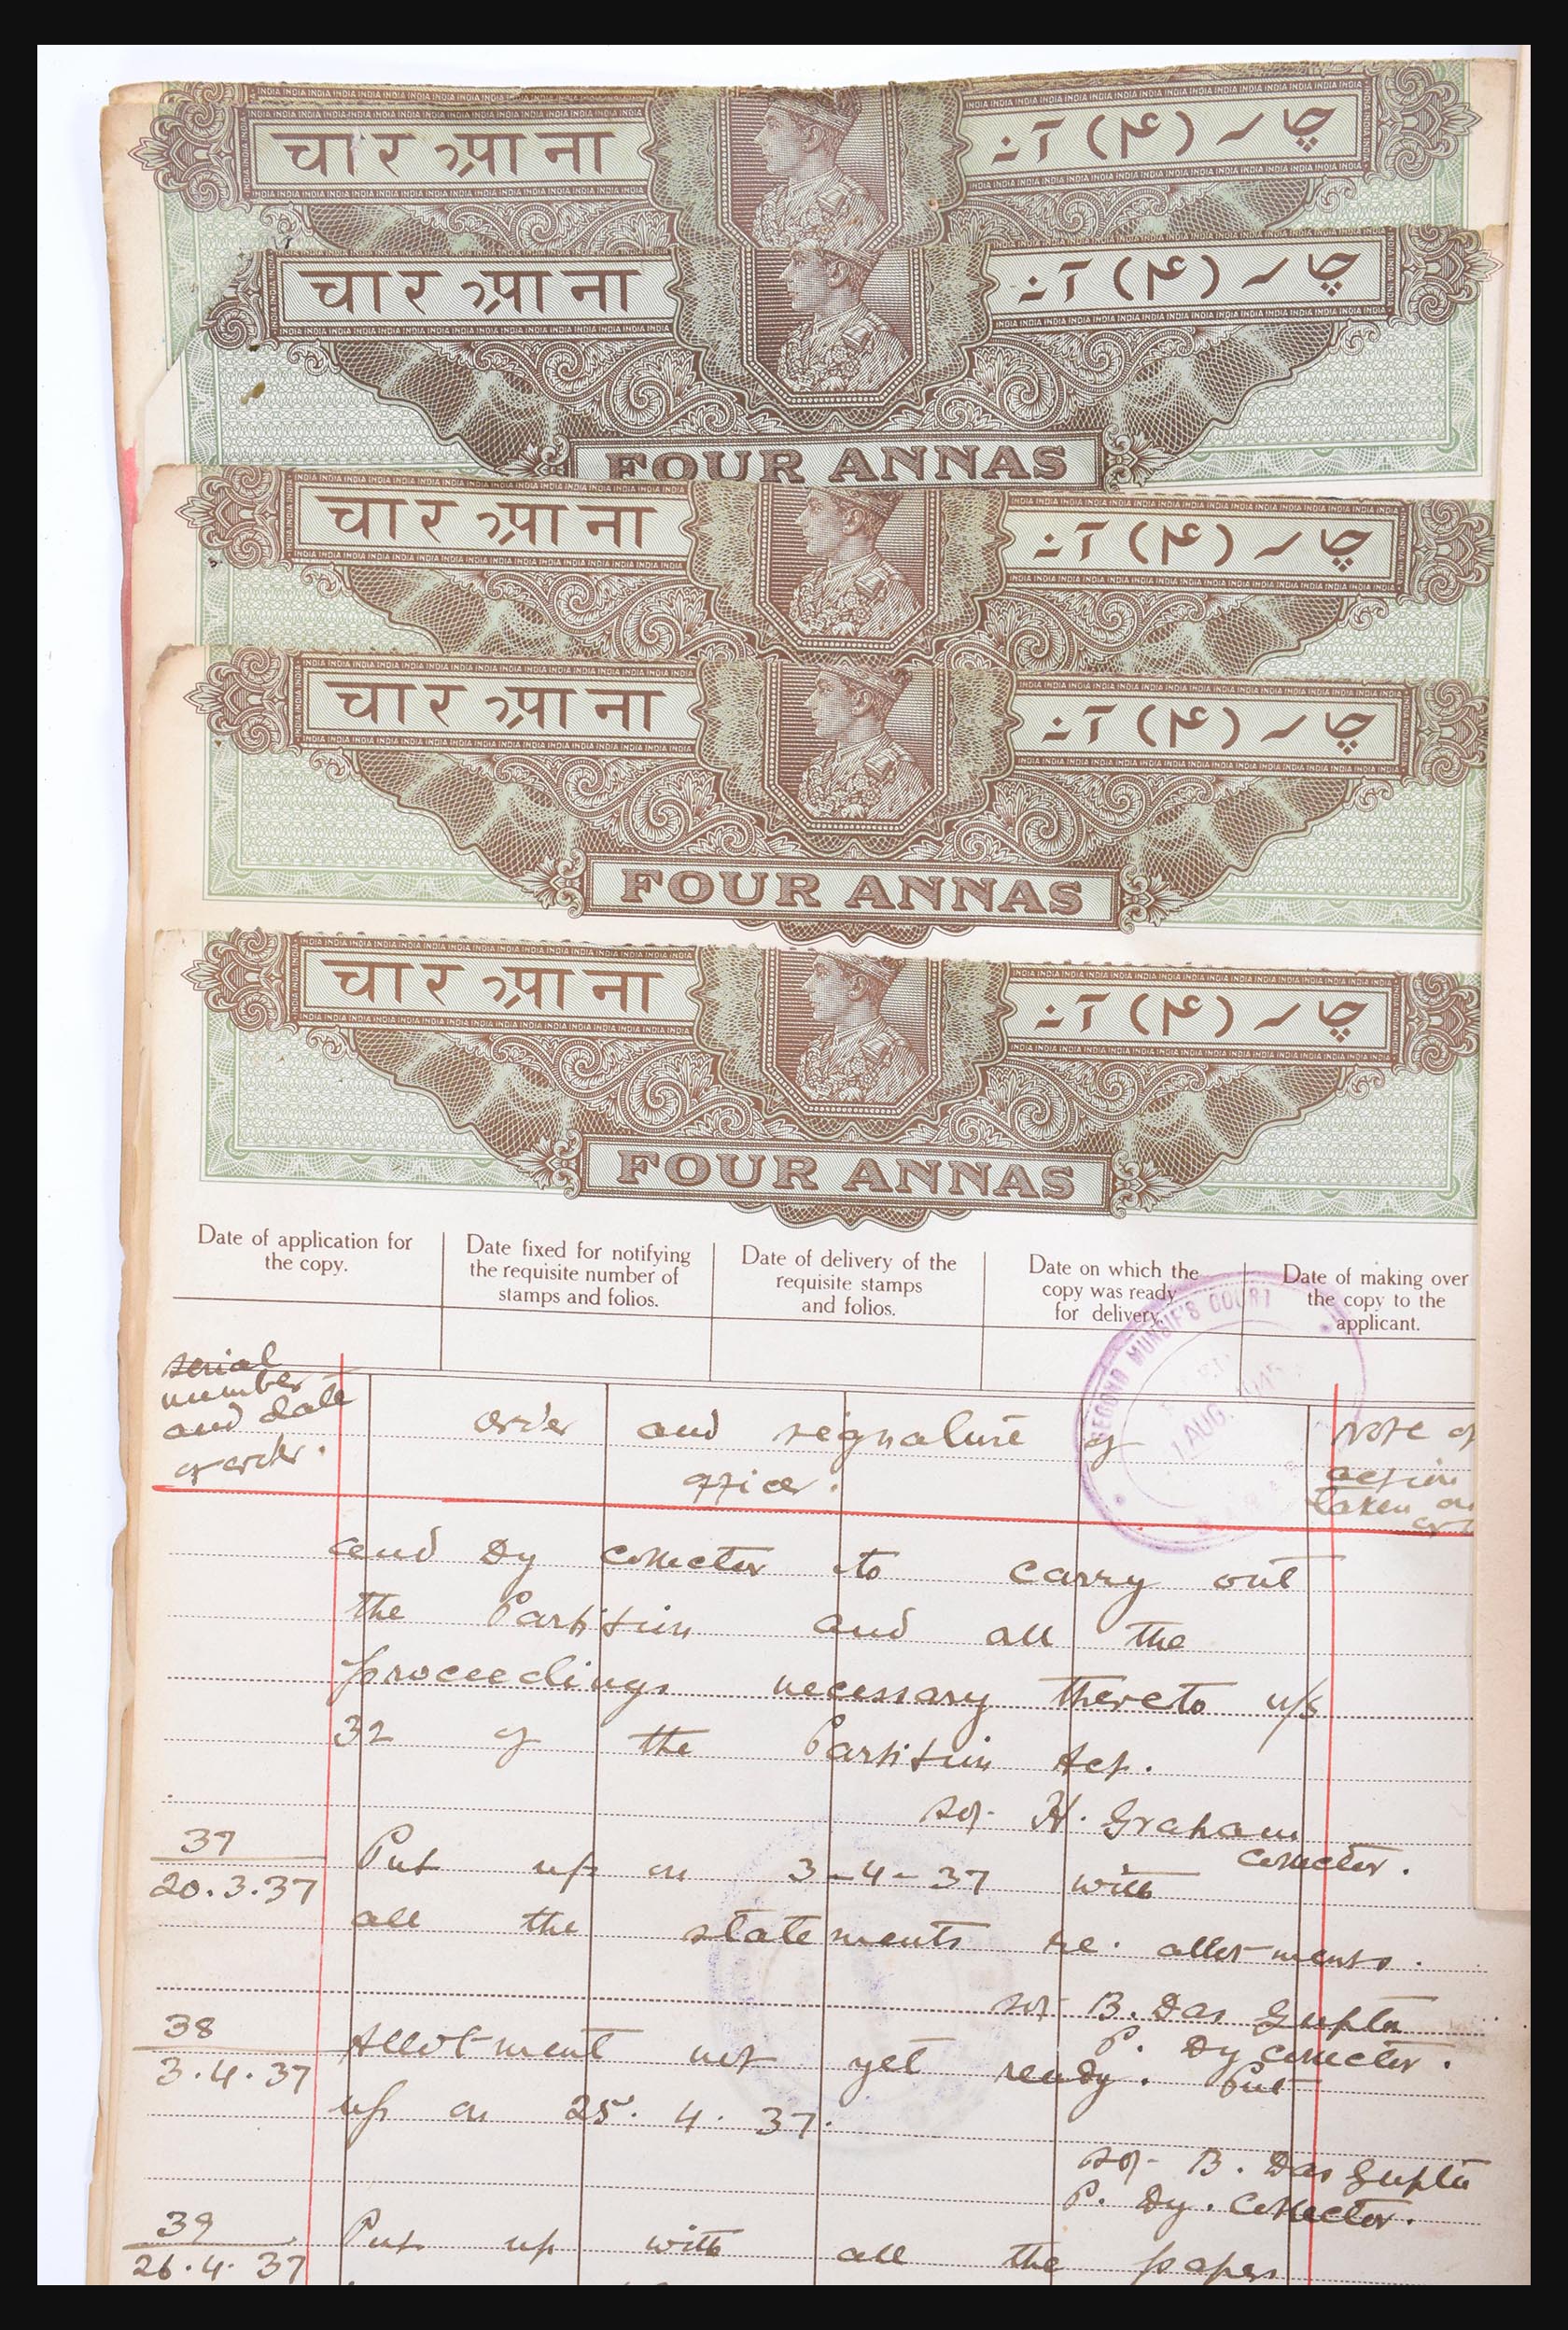 चार आना चार (۴) آنہ
चार आना چار (۴) آنہ
FOUR ANNAS
चार आना چار (۴) آنہ
चार आना چار (۴) آنہ
FOUR ANNAS
चार आना چار (۴) آنہ
FOUR ANNAS
Date of application for
the copy.
Date fixed for notifying
the requisite number of
stamps and folios.
Date of delivery of the
requisite stamps
and folios.
Date on which the
copy was ready
for delivery.
Date of making over
the copy to the
applicant.
SECOND MUNSIF'S COURT
1 AUG.
serial
number
and date
of order.
order and signature of
officer.
Note of
action
taken on
and Dy Collector to carry out
the Partition and all the
proceedings necessary thereto u/s
32 of the Partition Act.
sd/- H. Graham
Collector.
37
20.3.37
Put up on 3-4-37 with
all the statements re. allotments.
sd/- B. Das Gupta
P. Dy collector.
38
3.4.37
Allotment not yet ready. Put
up on 25. 4. 37.
sd/- B. Das Gupta
P. Dy. Collector.
39
26.4.37
Put up with all the papers